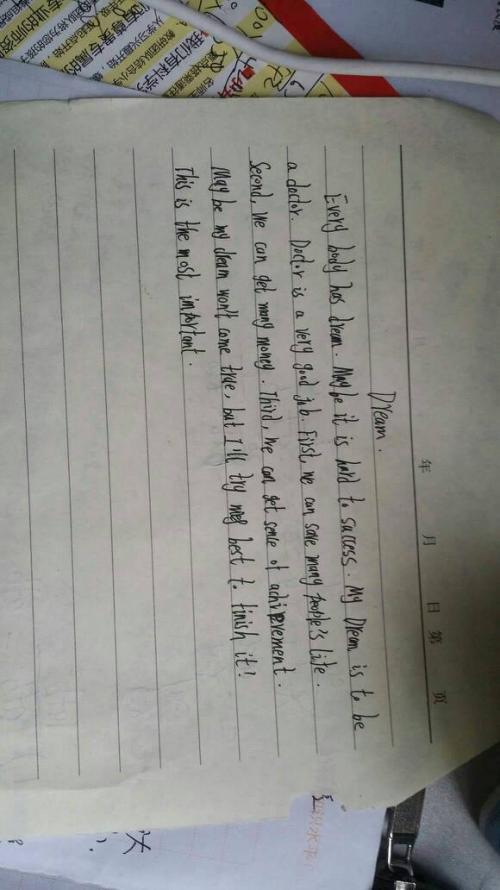 年 月 日 第 页
Dream.
Every body has dream. Maybe it is hard to success. My Dream is to be
a doctor. Doctor is a very good job. First, we can save many people's life.
Second, we can get many money. Third, we can get sense of achievement.
May be my dream won't come true, but I'll try my best to finish it!
This is the most important.